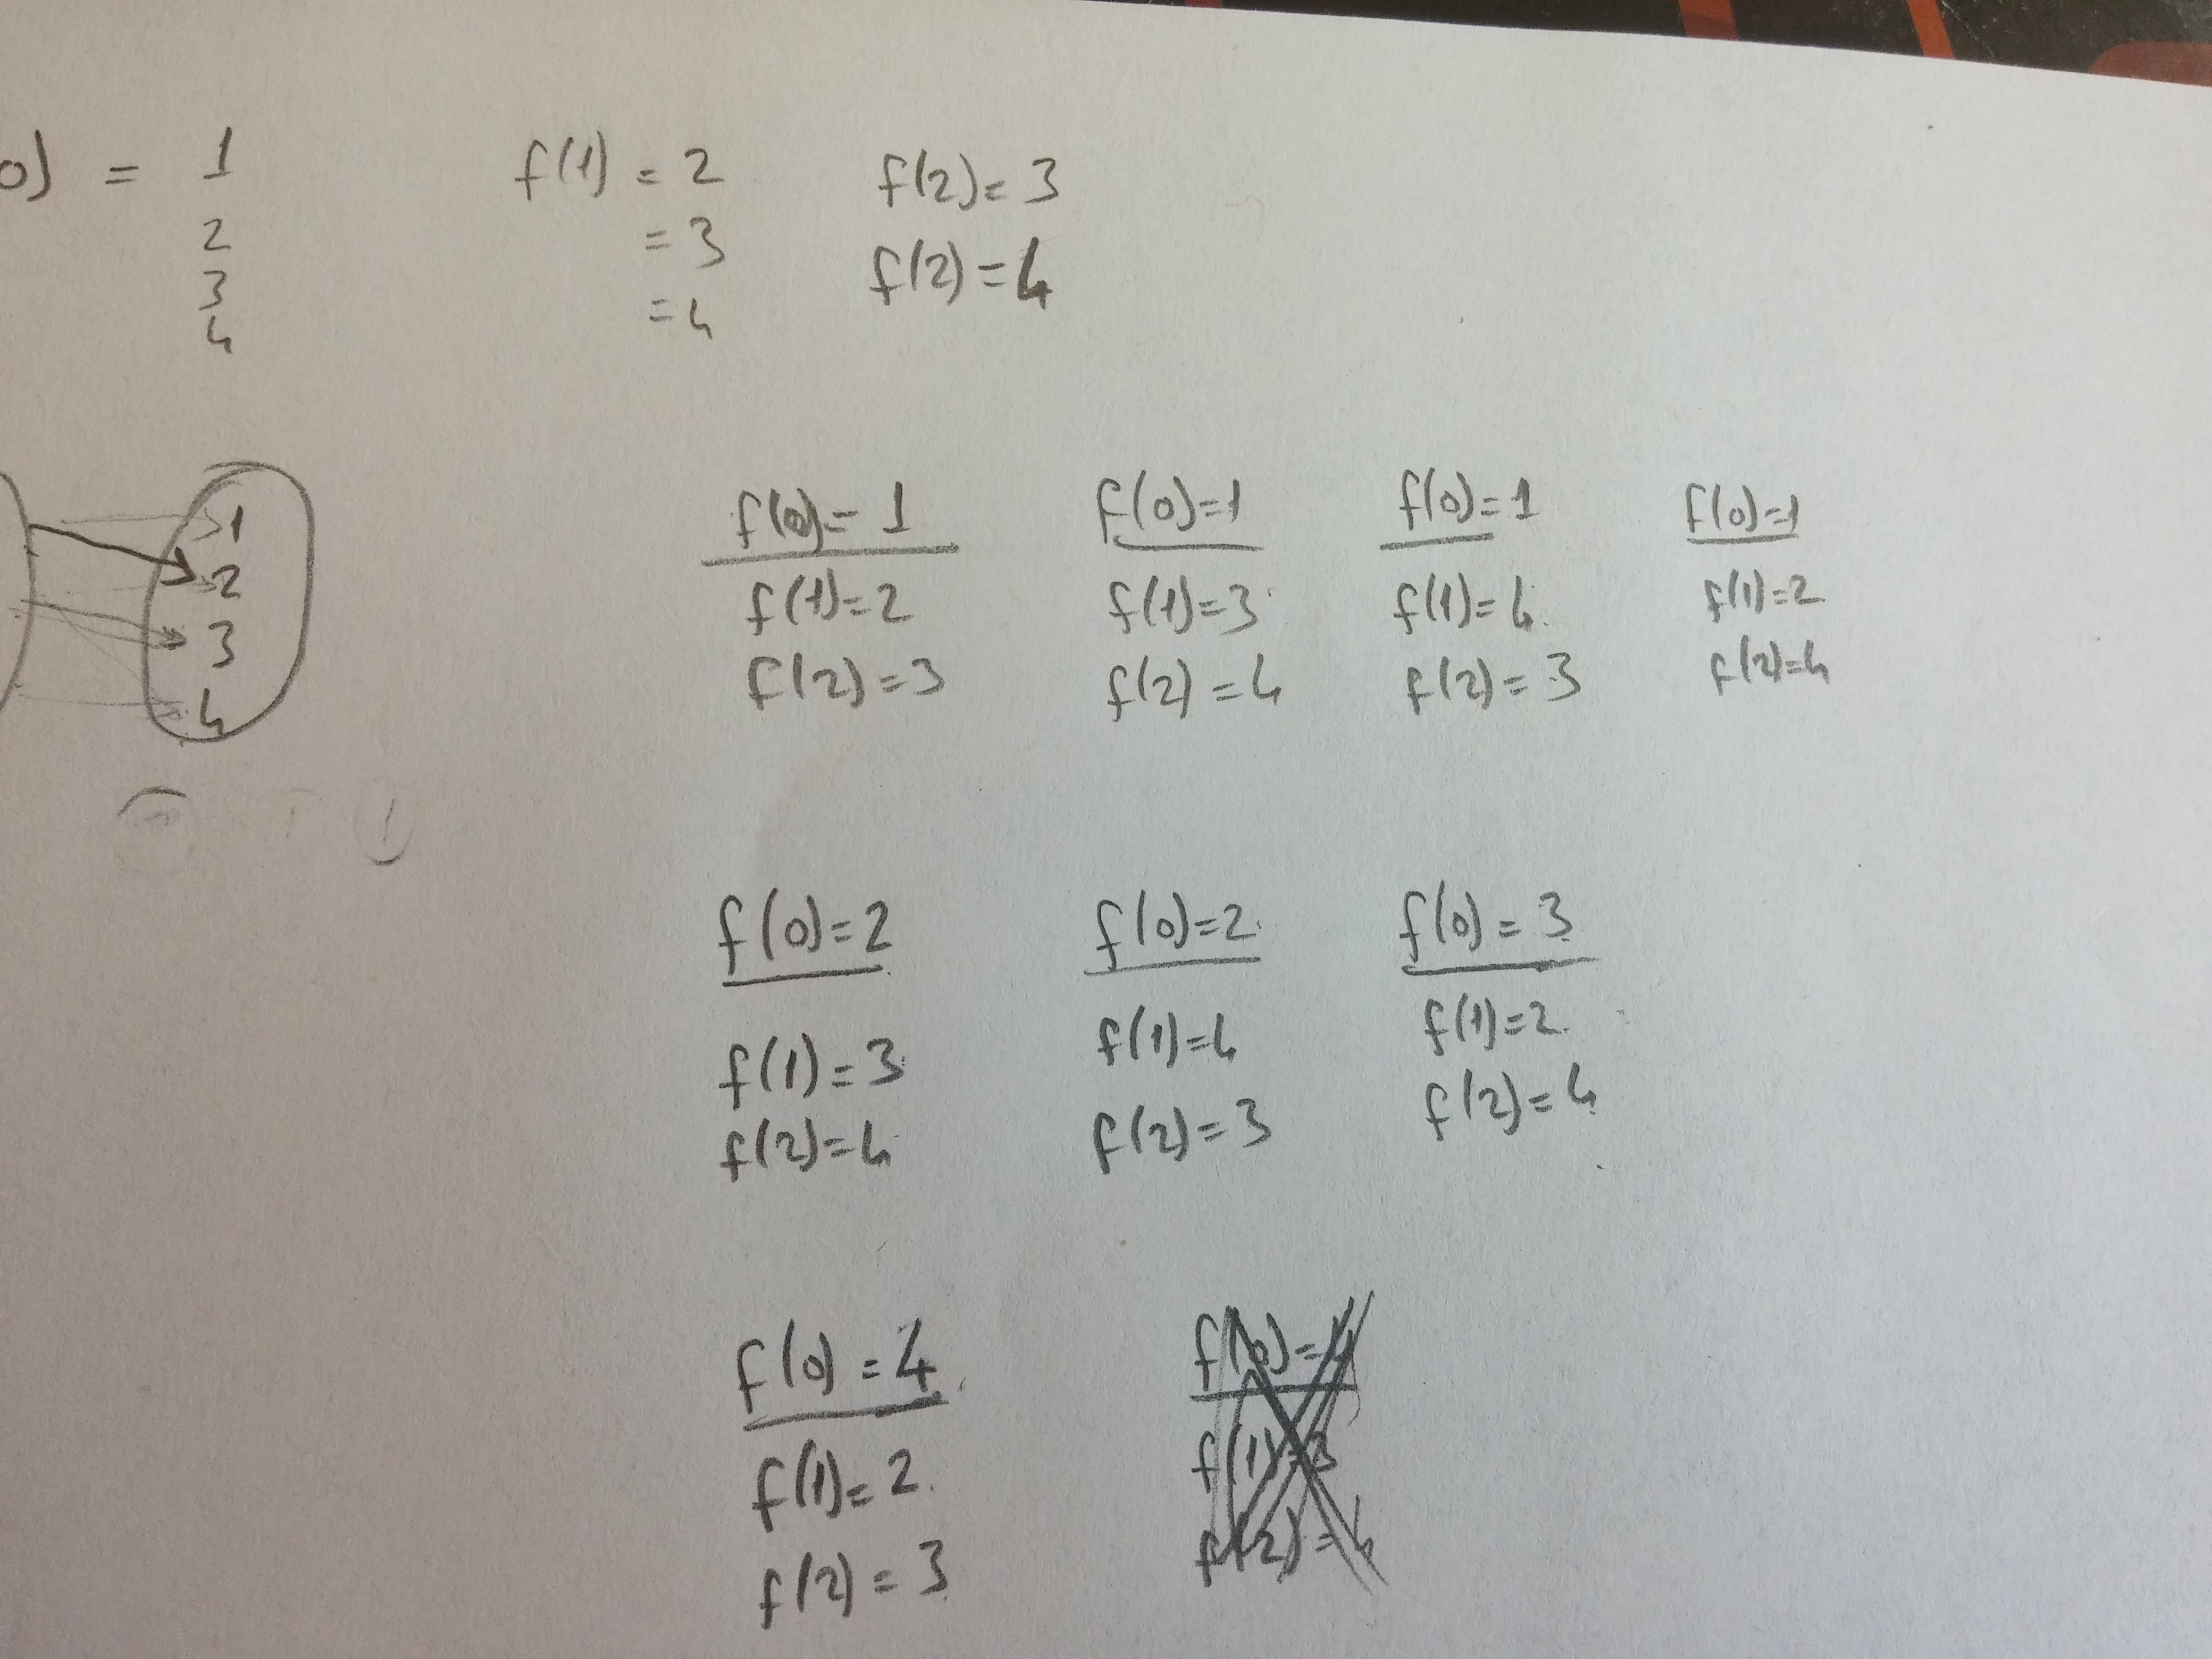 0) = 1 f(1) = 2 f(2) = 3
2 = 3 f(2) = 4
3
4 = 4
1
2
3
4
f(0) = 1 f(0)=1 f(0)=1 f(0)=1
f(1)=2 f(1)=3 f(1)=4 f(1)=2
f(2)=3 f(2)=4 f(2)=3 f(2)=4
f(0)=2 f(0)=2 f(0)=3
f(1)=3 f(1)=4 f(1)=2
f(2)=4 f(2)=3 f(2)=4
f(0)=4
f(1)=2 f(1)=3
f(2)=3 f(2)=4